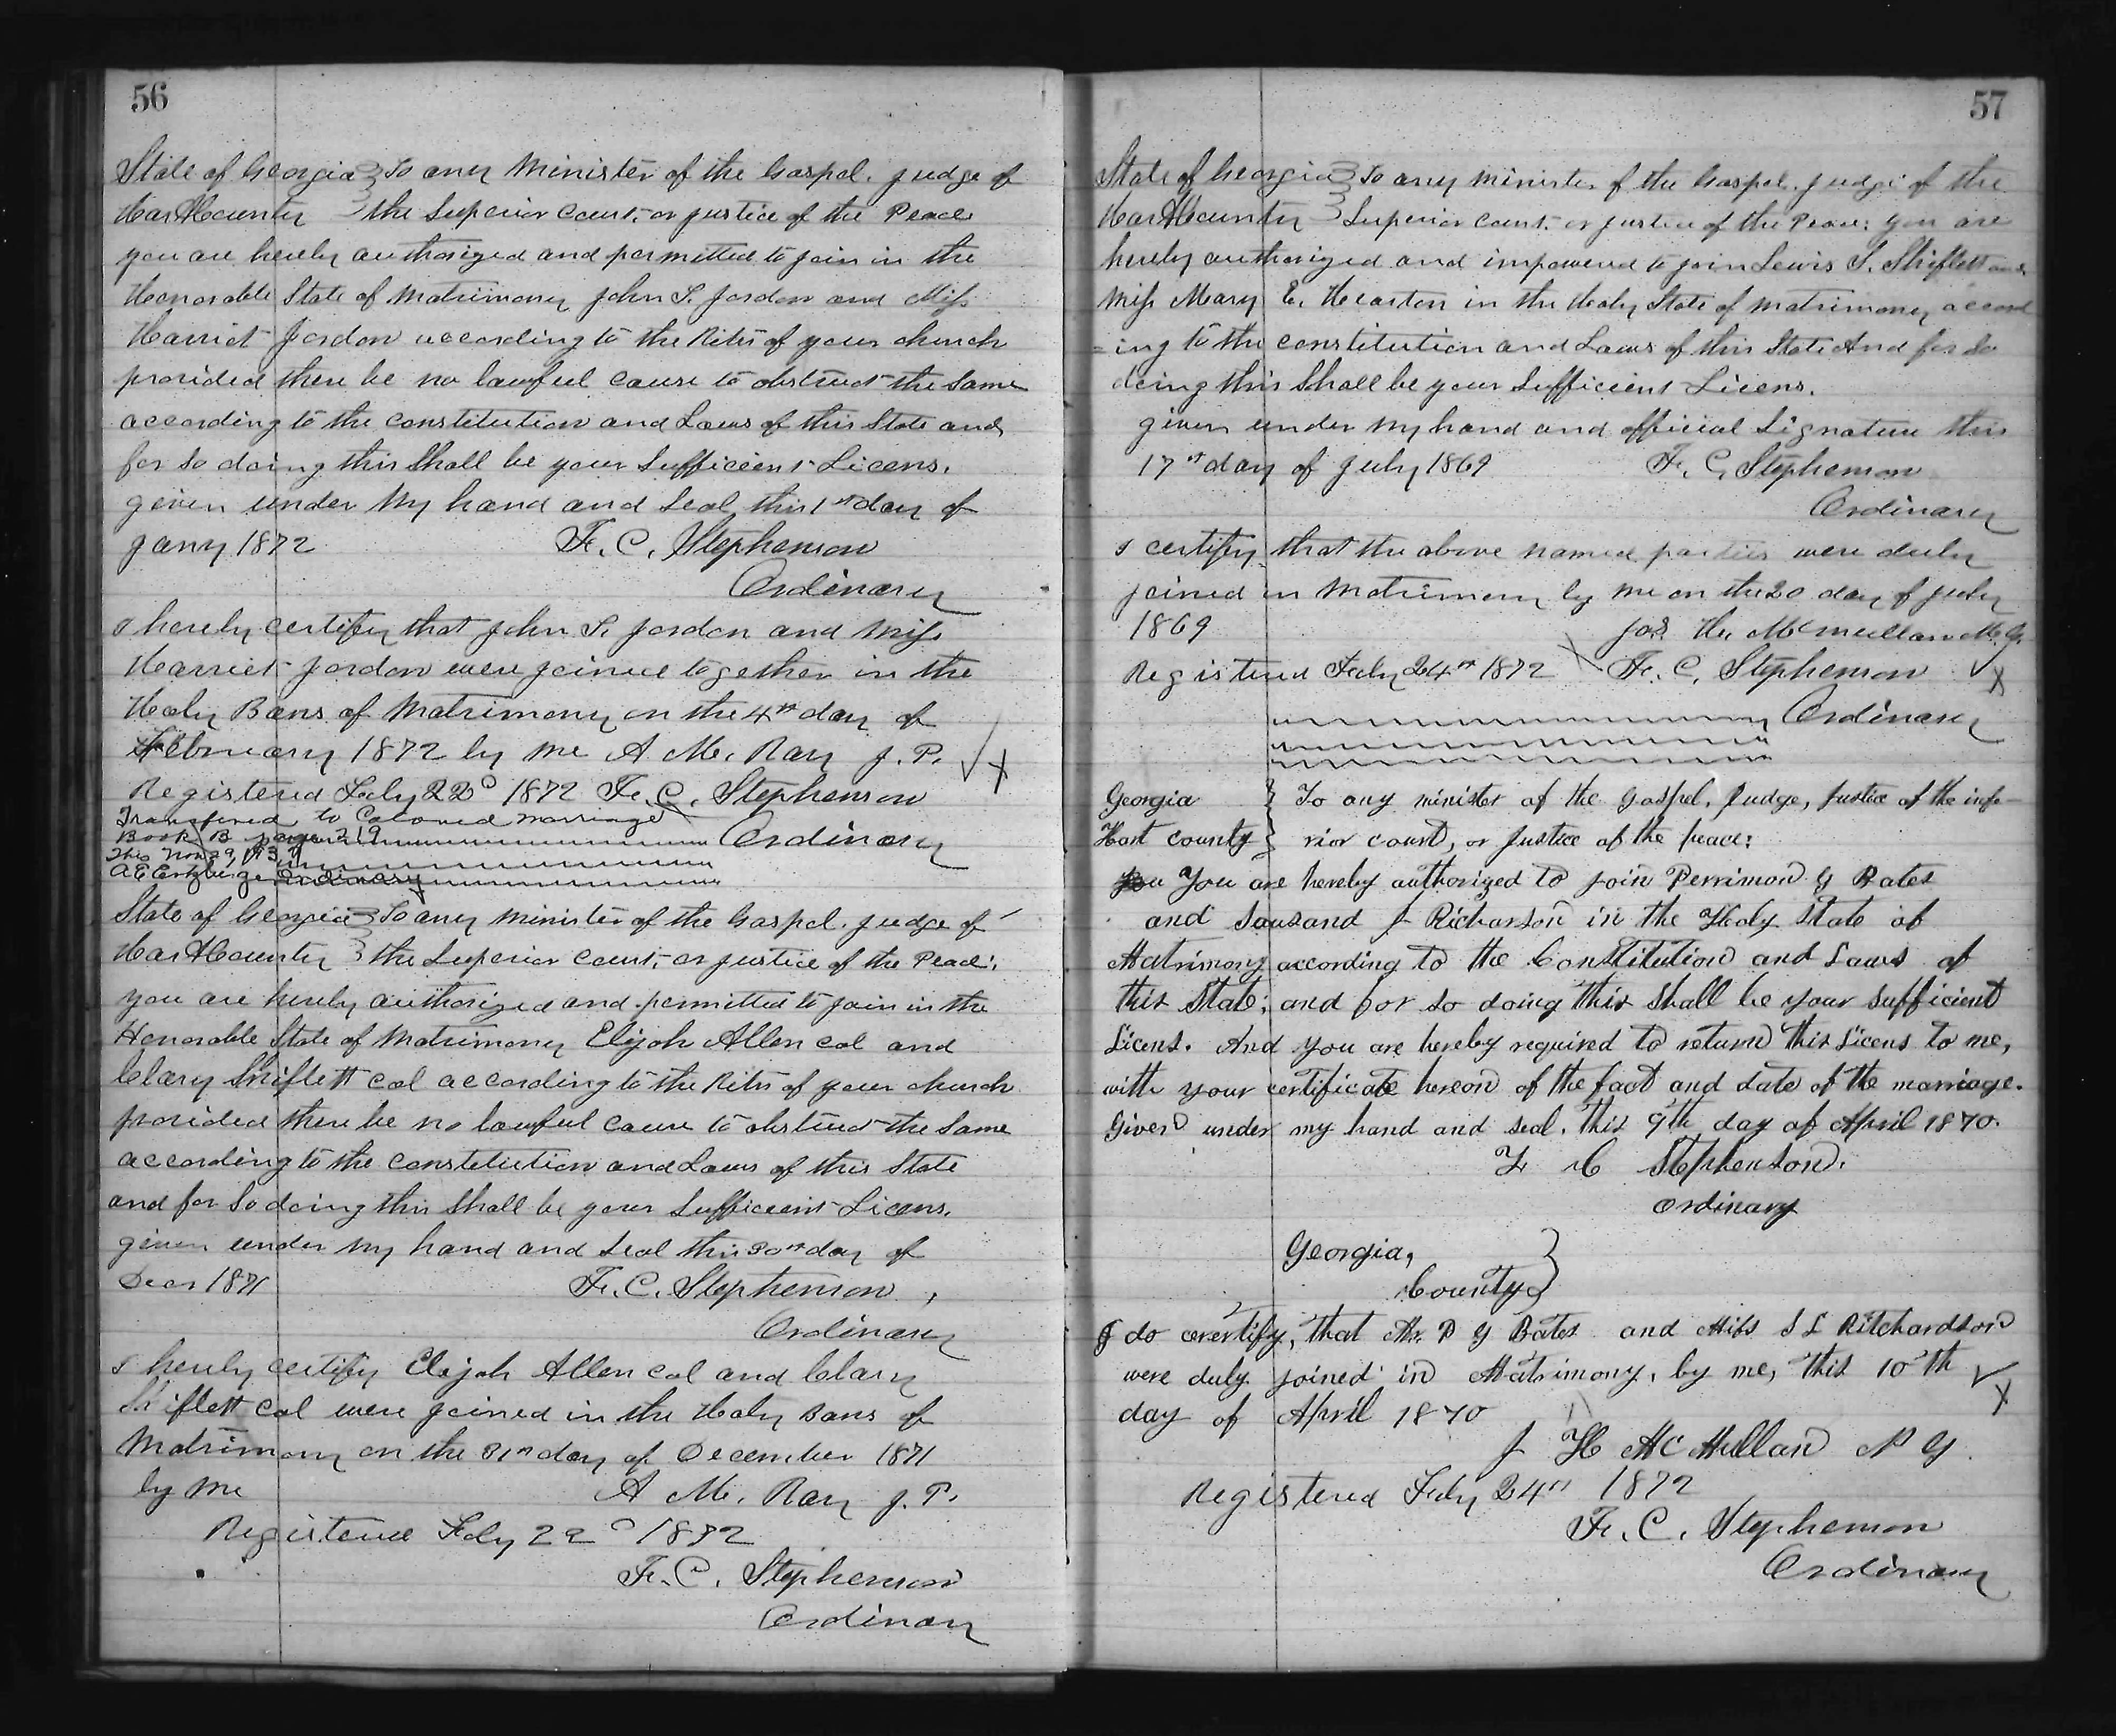 56
State of Georgia } To any Minister of the Gospel. Judge of
Hart County } the Superior Court, or justice of the Peace
you are hereby authorized and permitted to join in the
Honorable State of Matrimony John S. Jordon and Miss
Harriet Jordon according to the Rites of your church
provided there be no lawful cause to obstruct the same
according to the constitution and Laws of this State and
for so doing this shall be your sufficient Licens.
given under my hand and seal this 1st day of
Jany 1872 F. C. Stephenson
Ordinary
I hereby certify that John S. Jordon and Miss
Harriet Jordon were joined together in the
Holy Bans of Matrimony on the 4th day of
February 1872 by me A M. Ray J. P.
Registered Feby 22d 1872 F. C. Stephenson
Transfered to Colored marriage
Book B page 219 Ordinary
This Nov 29, 193
Ordinary
State of Georgia } To any Minister of the Gospel. Judge of
Hart County } the Superior Court, or justice of the Peace.
you are hereby authorized and permitted to join in the
Honorable State of Matrimony Elijah Allen col and
Clary Shiflett col according to the Rites of your church
provided there be no lawful cause to obstruct the same
according to the constitution and Laws of this State
and for so doing this shall be your sufficient Licens.
given under my hand and seal this 30th day of
Decr 1871 F. C. Stephenson
Ordinary
I hereby certify Elijah Allen col and Clary
Shiflett col were joined in the Holy Bans of
Matrimony on the 31st day of December 1871
by me A M. Ray J. P.
Registered Feby 22d 1872
F. C. Stephenson
Ordinary
57
State of Georgia } To any minister of the Gospel. Judge of the
Hart County } Superior Court. or justice of the Peace: you are
hereby authorized and impowered to join Lewis S. Shiflett and
Miss Mary E. Hearton in the Holy State of matrimony accord
=ing to the constitution and Laws of this State And for so
doing this shall be your sufficient Licens.
given under my hand and official signature this
17th day of July 1869 F. C. Stephenson
Ordinary
I certify that the above named parties were duly
joined in Matrimony by me on the 20 day of July
1869 Jas. H. McMullan M. G.
Registered Feby 24th 1872 F. C. Stephenson
Ordinary
Georgia } To any minister of the Gospel, Judge, Justice of the infe-
Hart county } rior court, or Justice of the peace:
You are hereby authorized to join Perrimon G Bates
and Sousand J Richarson in the Holy State of
Matrimony according to the Constitution and Laws of
this State; and for so doing this shall be your sufficient
Licens. And you are hereby required to return this Licens to me,
with your certificate hereon of the fact and date of the marriage.
Given under my hand and seal. This 9th day of April 1870.
F C Stephenson.
ordinary
Georgia, }
County }
I do cerertify, that Mr. P G Bates and Miss S L Ritchardson
were duly joined in Matrimony, by me, this 10th
day of April 1870
J H McMullan M G.
Registered Feby 24th 1872
F. C. Stephenson
Ordinary